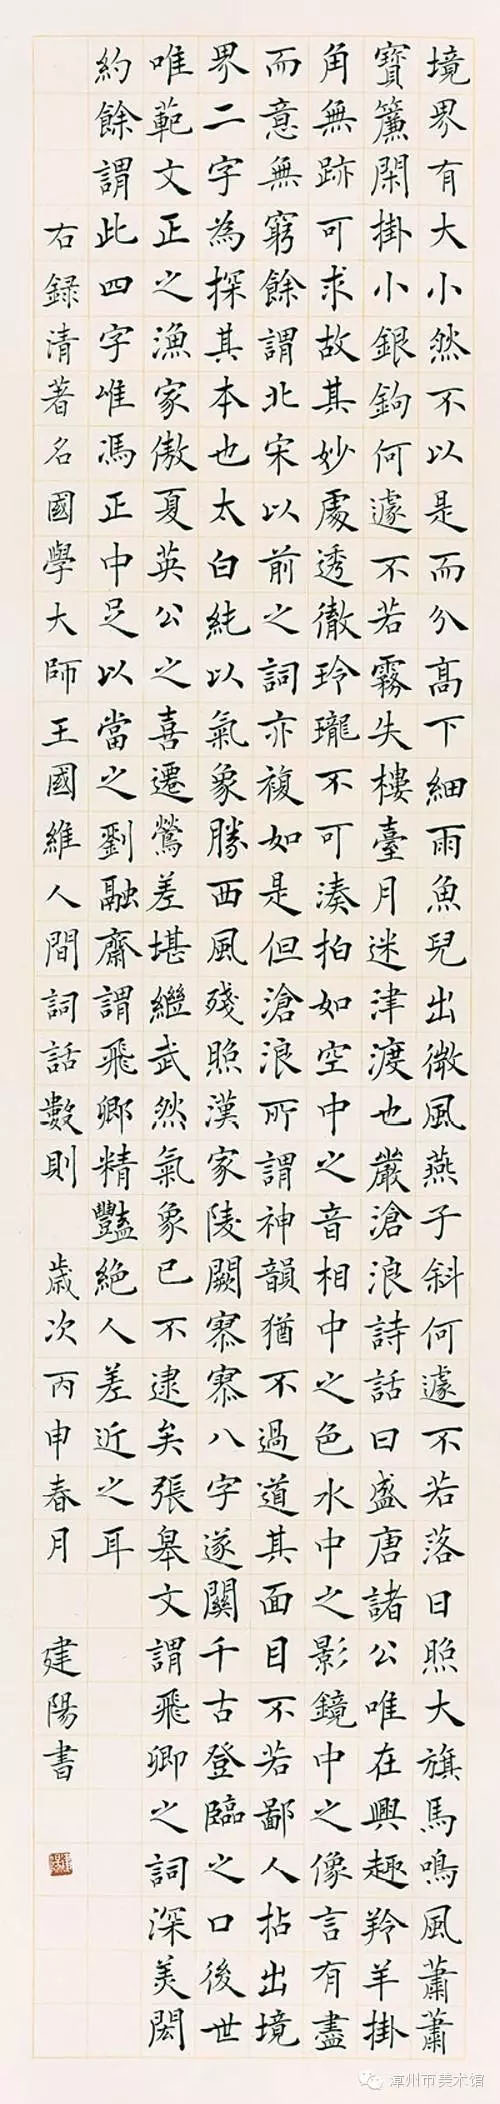 境界有大小然不以是而分高下細雨魚兒出微風燕子斜何遽不若落日照大旗馬鳴風蕭蕭
寶簾閑掛小銀鉤何遽不若霧失樓臺月迷津渡也嚴滄浪詩話曰盛唐諸公唯在興趣羚羊掛
角無跡可求故其妙處透徹玲瓏不可湊拍如空中之音相中之色水中之影鏡中之像言有盡
而意無窮餘謂北宋以前之詞亦複如是但滄浪所謂神韻猶不過道其面目不若鄙人拈出境
界二字為探其本也太白純以氣象勝西風殘照漢家陵闕寥寥八字遂關千古登臨之口後世
唯範文正之漁家傲夏英公之喜遷鶯差堪繼武然氣象已不逮矣張皋文謂飛卿之詞深美閎
約餘謂此四字唯馮正中足以當之劉融齋謂飛卿精豔絕人差近之耳
右録清著名國學大師王國維人間詞話數則 歲次丙申春月 建陽書
漳州市美术馆